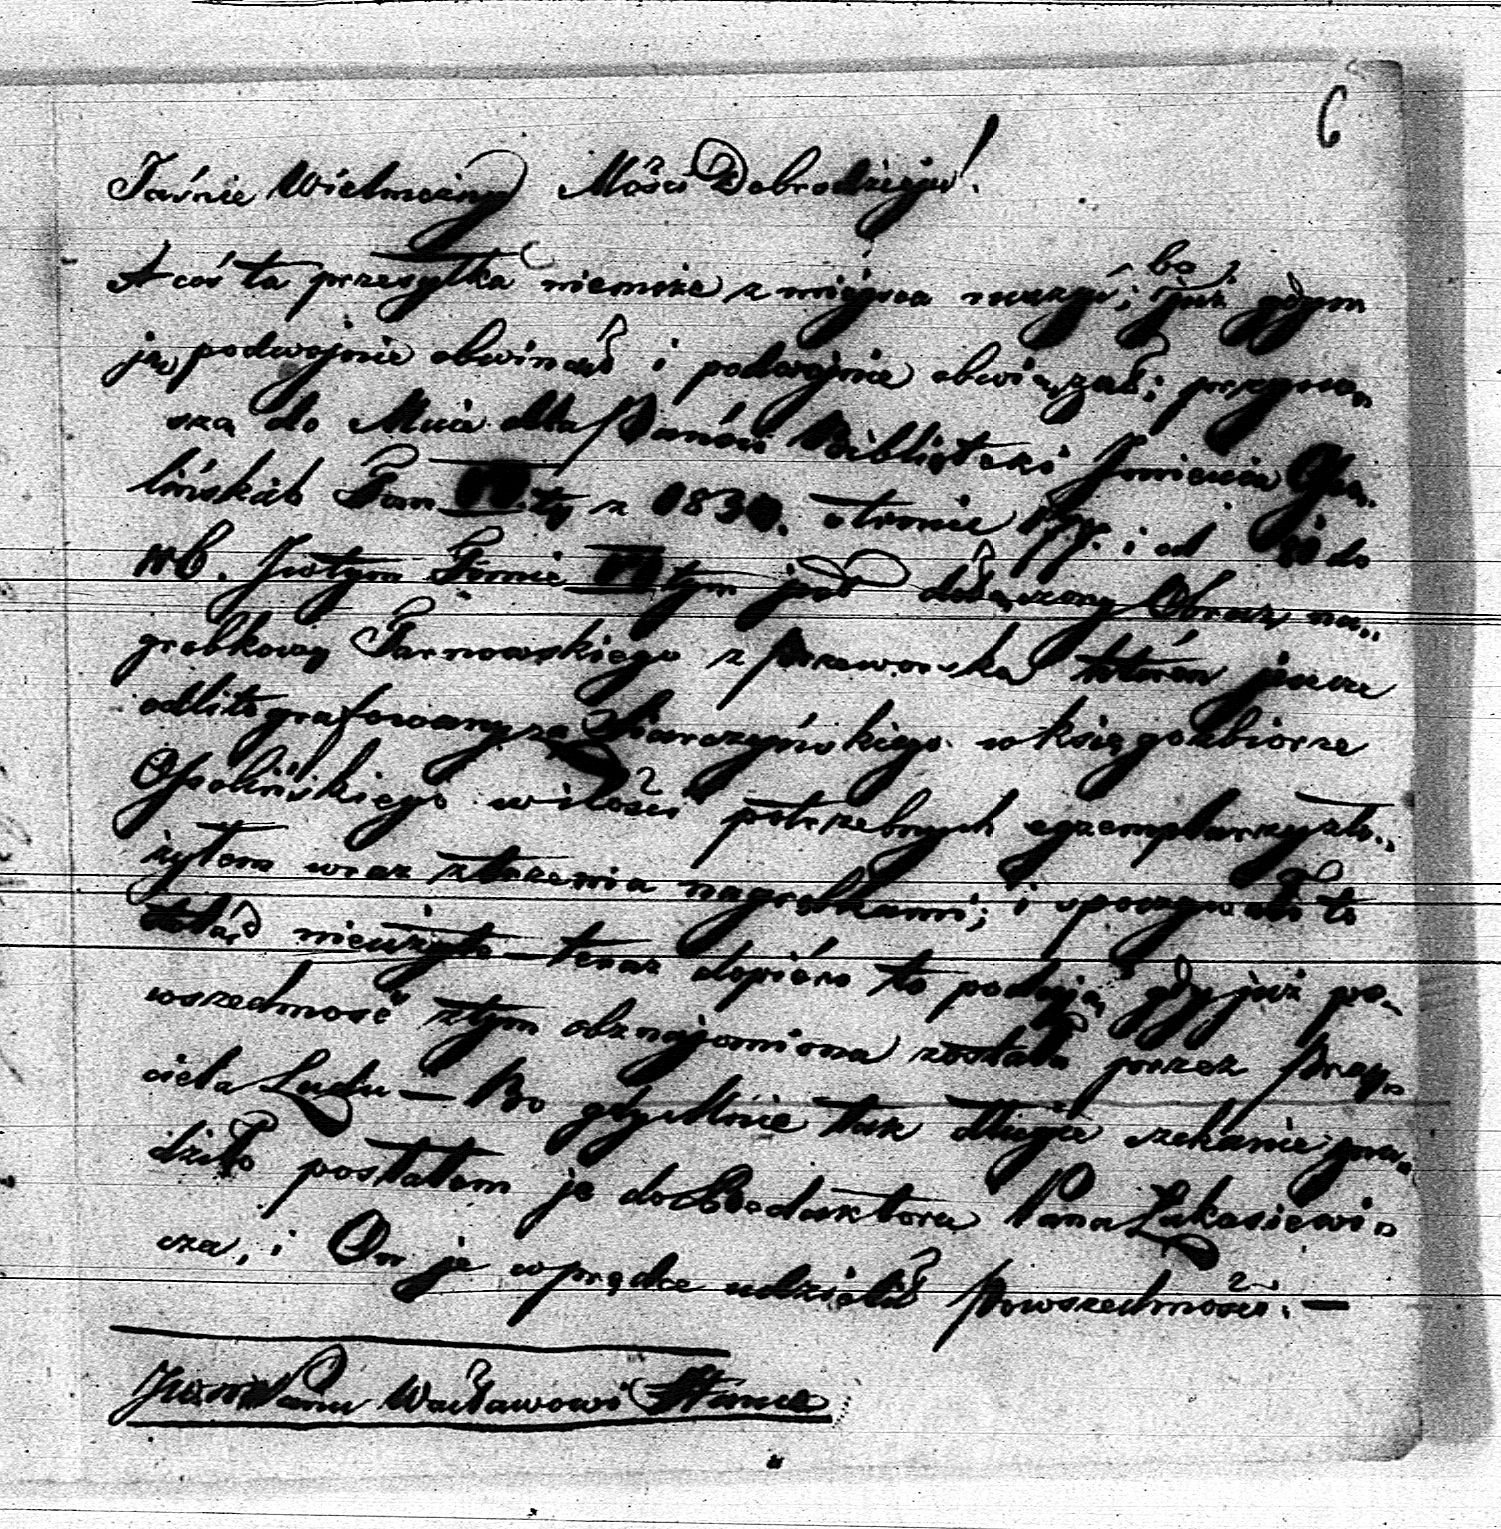 6
Jaśnie Wielmożny Mości Dobrodzieju!
A coś ta przesyłka niemoże z miejsca ruszyć; bo już gdym
ją podwojnie obwinął i podwojnie obwiązał; przyno„
szą do Mnie dla Panów Biblioteki Jmienia Osso„
lińskich Tom z 183 stronie 177. i od do
116. Jwtym Tomie tym jest dołączony Obraz na„
grobkowy Tarnowskiego z Przeworska któren jeszcze
odlitografowany za Siarczyńskiego w księgozbiorze
Ossolińskiego w ilości potrzebnych egzemplarzy zło„
żyłem wraz nagrobkami; i spoczywało to
dotąd nieużyte — teraz dopiéro to podają gdy już po„
wszechność ztym obznajomiona została przez Przyja„
ciela Ludu — Bo gdy Mnie tak długie czekanie znu„
dziło posłałem je do Redaktora Pana Łukasiewi„
cza, i On je wprędce udzielił Powszechności. —
Panu Wacławowi Hance